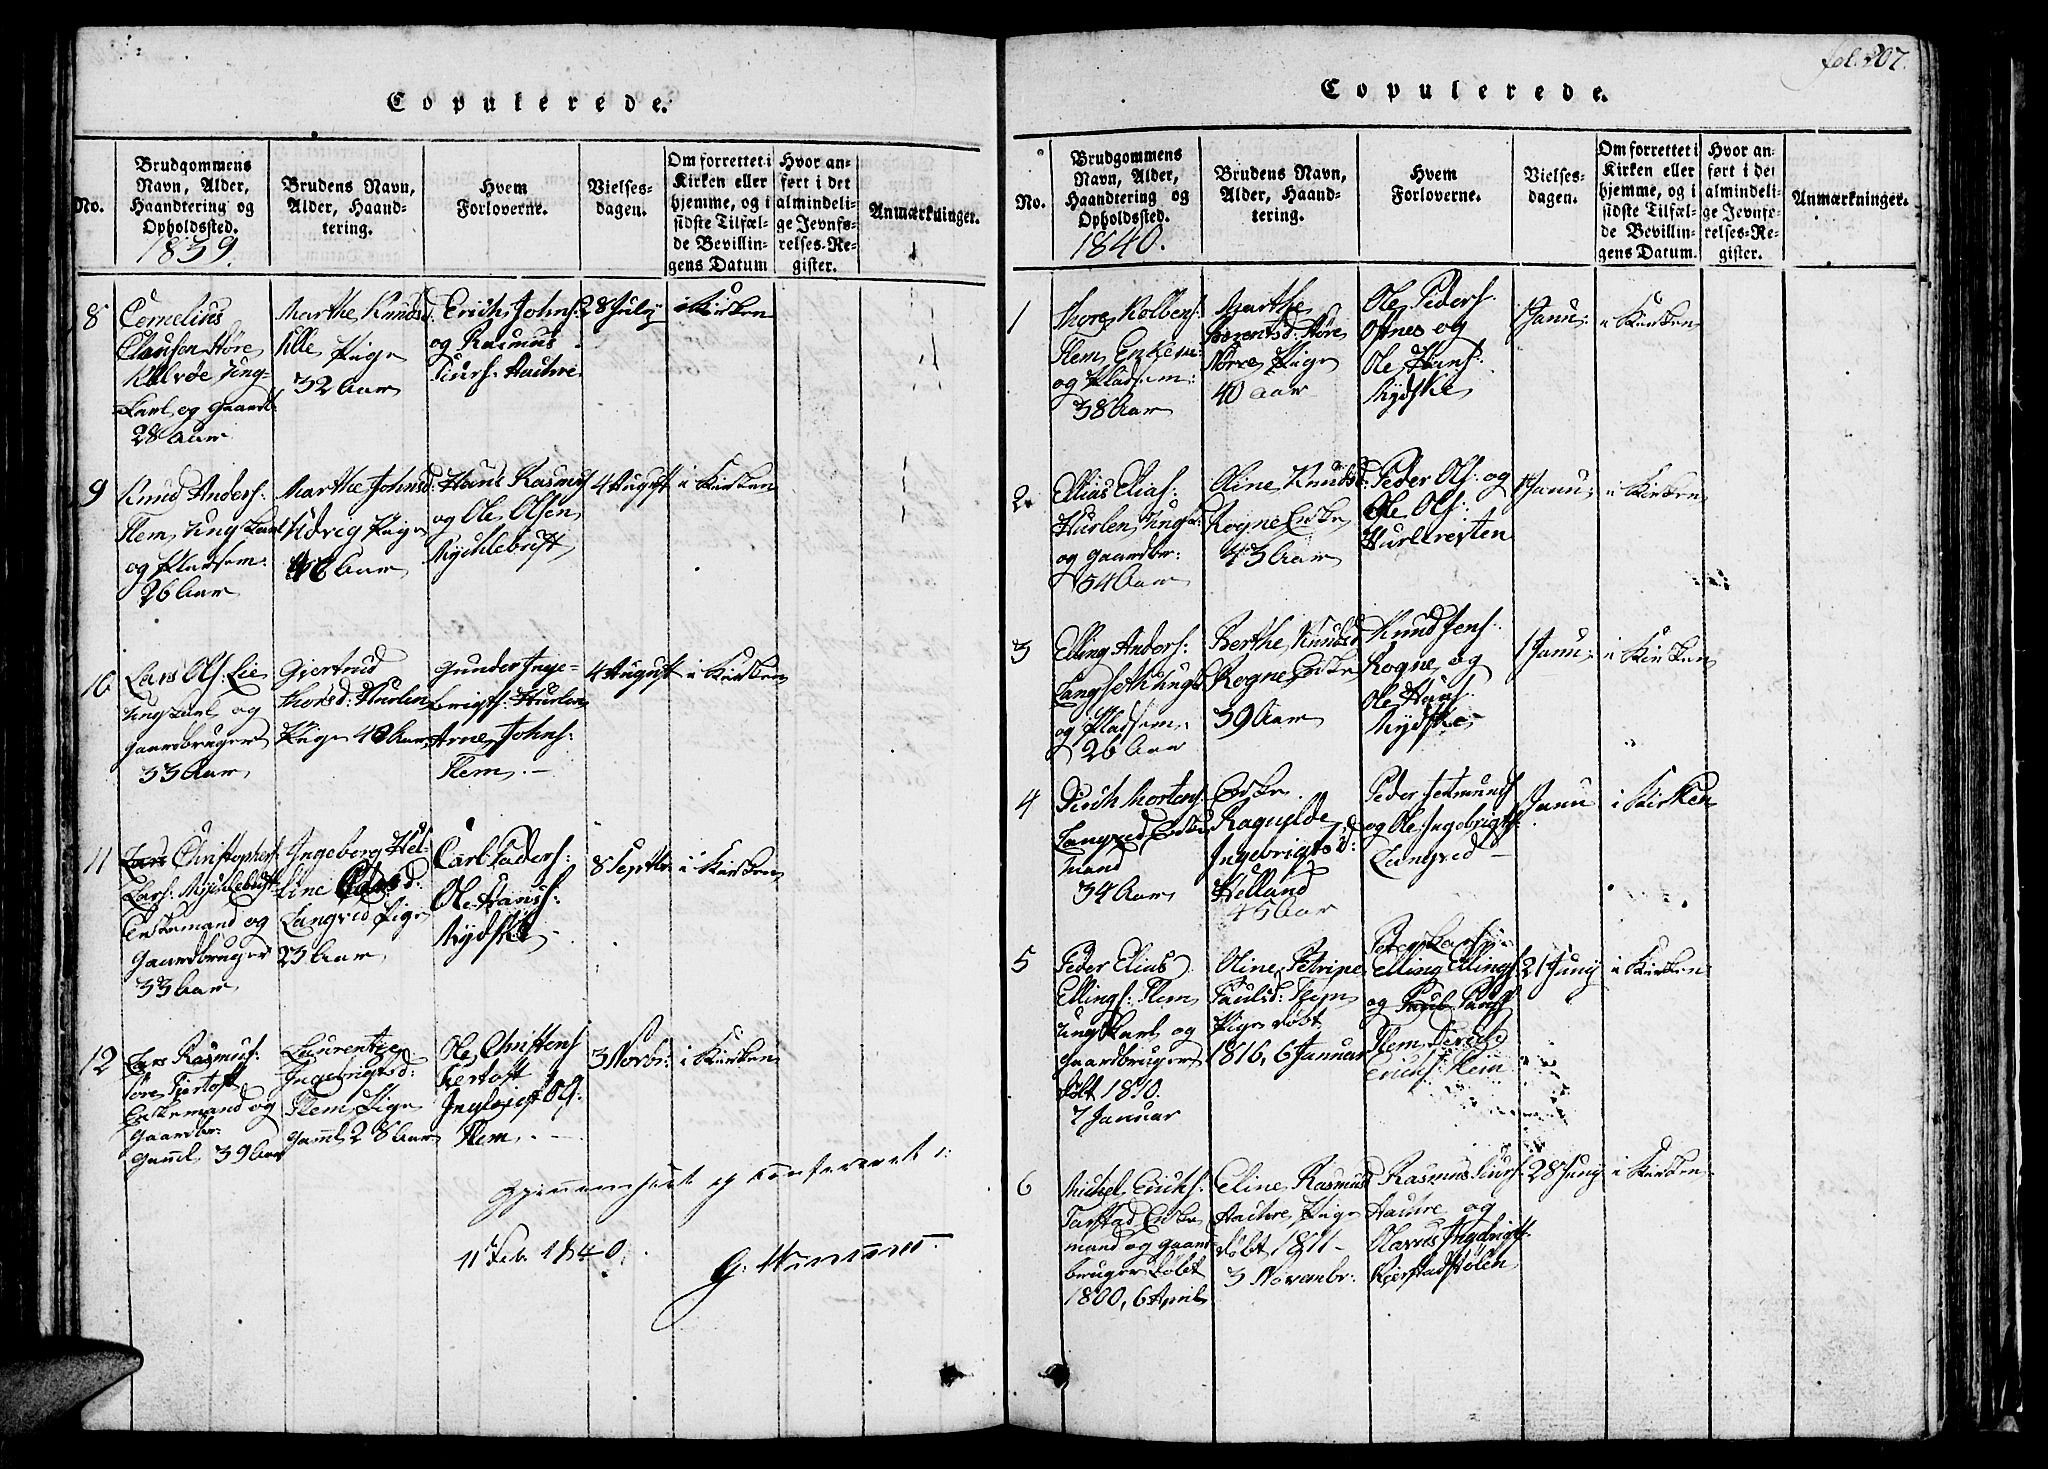 Copulerede.
No.
Brudgommens
Navn, Alder,
Haandtering og
Opholdssted.
1839.
Brudens Navn,
Alder, Haand-
tering.
Hvem
Forloverne.
Vielses-
dagen.
Om forrettet i
Kirken eller
hjemme, og i
sidste Tilfæl-
de Bevillin-
gens Datum
Hvor an-
ført i det
almindeli-
ge Jevnfø-
relses-Re-
gister.
Anmærkninger.
8
Cornelius
Clausen Høre
Kalvøe Ung-
karl og Gaardb:
28 Aar
Marthe Knudsd:
Lille Pige
32 Aar
Erich Johns:
og Rasmus
Siurs: Hauhre
28 July
i Kirken
9
Knud Anders:
Flem Ungkarl
og Pladsm:
26 Aar
Marthe Johnsd:
Udvig Pige
46 Aar
Hans Rasmus
og Ole Olsen
Myhlebust
4 August
i Kirken
10
Lars Ols: Lie
Ungkarl og
Gaardbruger
33 Aar
Giertrud
Thorsd: Hurlen
Pige 40 Aar
Gunder Inge-
brigts: Hurlen
Arne Johns:
Flem. –
4 August
i Kirken
11
Christopher
Lars: Myhlebust
Enkemand og
Gaardbruger
33 Aar
Ingeborg Hel-
line
Langved Pige
23 Aar
Carl Peders:
Ole Hans:
Mydske
8 Septbr
i Kirken
12
Lars Rasmus:
Søre Fiertoft
Enkemand og
Gaardbr:
Gaml 39 Aar
Laurentze
Ingebrigtsd:
Flem Pige
Gaml 28 Aar
Ole Christens
Fiertoft
Ols:
Flem. –
3 Novbr:
i Kirken
Giennemseet og confereret
11 Feb. 1840.
fol. 207.
Copulerede.
No.
Brudgommens
Navn, Alder,
Haandtering og
Opholdssted.
1840.
Brudens Navn,
Alder, Haand-
tering.
Hvem
Forloverne.
Vielses-
dagen.
Om forrettet i
Kirken eller
hjemme, og i
sidste Tilfæl-
de Bevillin-
gens Datum.
Hvor an-
ført i det
almindeli-
ge Jevnfø-
relses-Re-
gister.
Anmærkninger.
1
Thore Kolbens:
Flem Enkem:
og Pladsem:
38 Aar
Marthe
Berentsd: Høre
Nøre Pige
40 Aar
Ole Peders:
Ofnes og
Ole Hans:
Mydske
1 Janu:
i Kirken
2.
Elias Elias:
Hurlen Ungk:
og Gaardbr:
34 Aar
Oline Knudsd:
Rogne Enke
43 Aar
Peder Ols: og
Ole Ols:
Hurlereiten
1 Janu:
i Kirken
3
Elling Anders:
Langseth Ungk
og Pladsem:
26 Aar
Berthe Knudsd
Rogne Enke
39 Aar
Knud Jens:
Rogne og
Ole Hans:
Mydske
1 Janu:
i Kirken
4
Siurh Mortens:
Langved Enke
mand
34 Aar
Enke
Ragnilde
Ingebrigtsd:
Helland
45 Aar
Peder Asmunds
og Ole Ingebrigts:
Langved –
1 Janu
i Kirken
5
Peder Elias
Ellings: Flem
Ungkarl og
Gaardbruger
døbt 1810.
7 Januar
Oline Petrine
Paulsd: Flem
Pige døbt
1816, 6 Januar
Elling Ellings:
og
Flem
Erichs: Flem
21 Juny
i Kirken
6
Michel Erichs:
Farstad Enke
mand og Gaard
bruger døbt
1800, 6 April
Eline Rasmusd
Hauhre Pige
døbt 1811 –
3 Novembr:
Rasmus Siurs:
Hauhre og
Olavus Ingebrigts:
Kierstadstølen
28 Juny
i Kirken